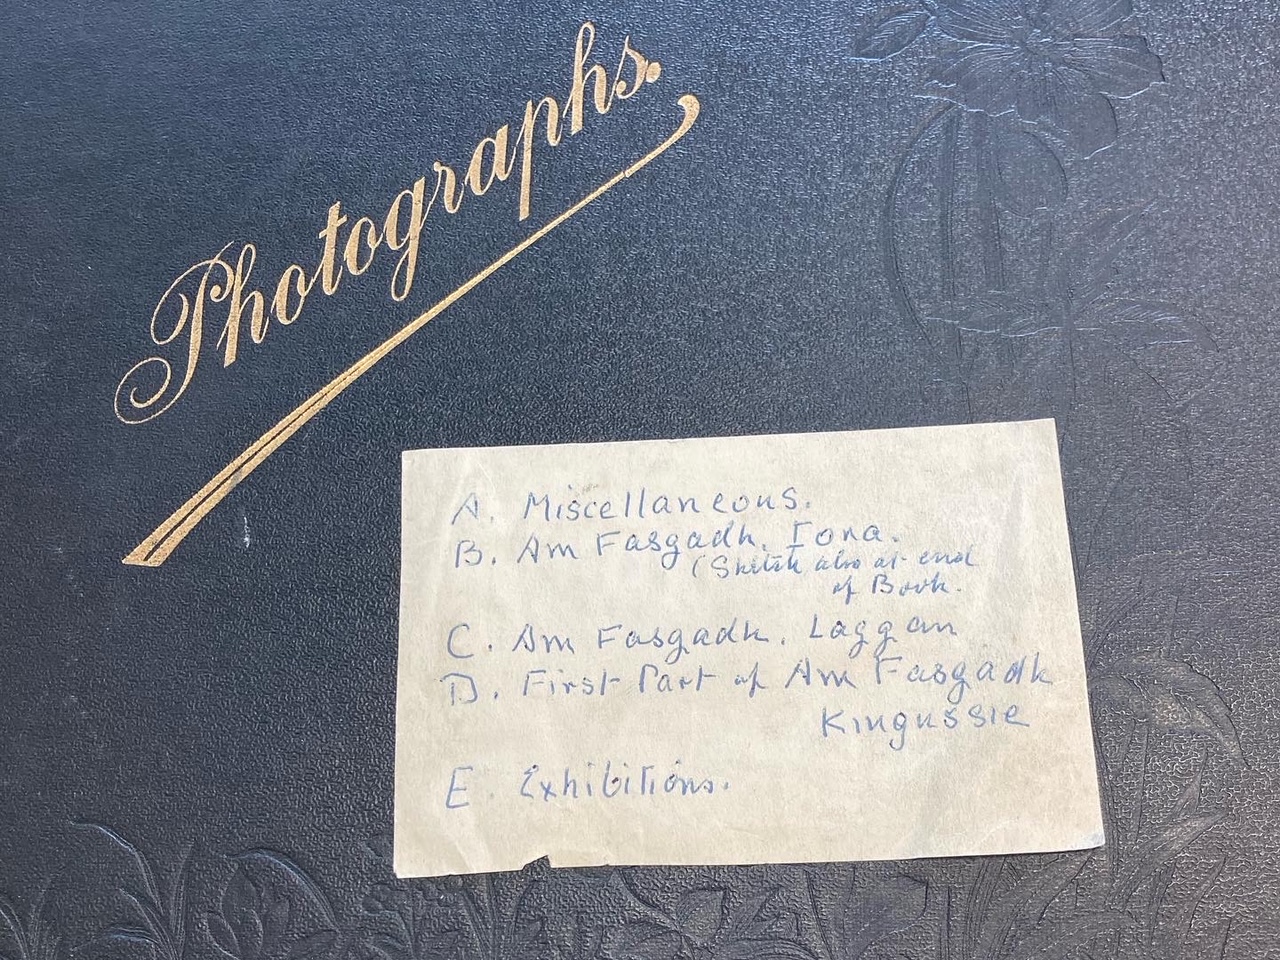 Photographs.
A. Miscellaneous.
B. Am Fasgadh, Iona.
(Sketch also at end
of Book.
C. Am Fasgadh, Laggan
D. First Part of Am Fasgadh
Kingussie
E. Exhibitions.